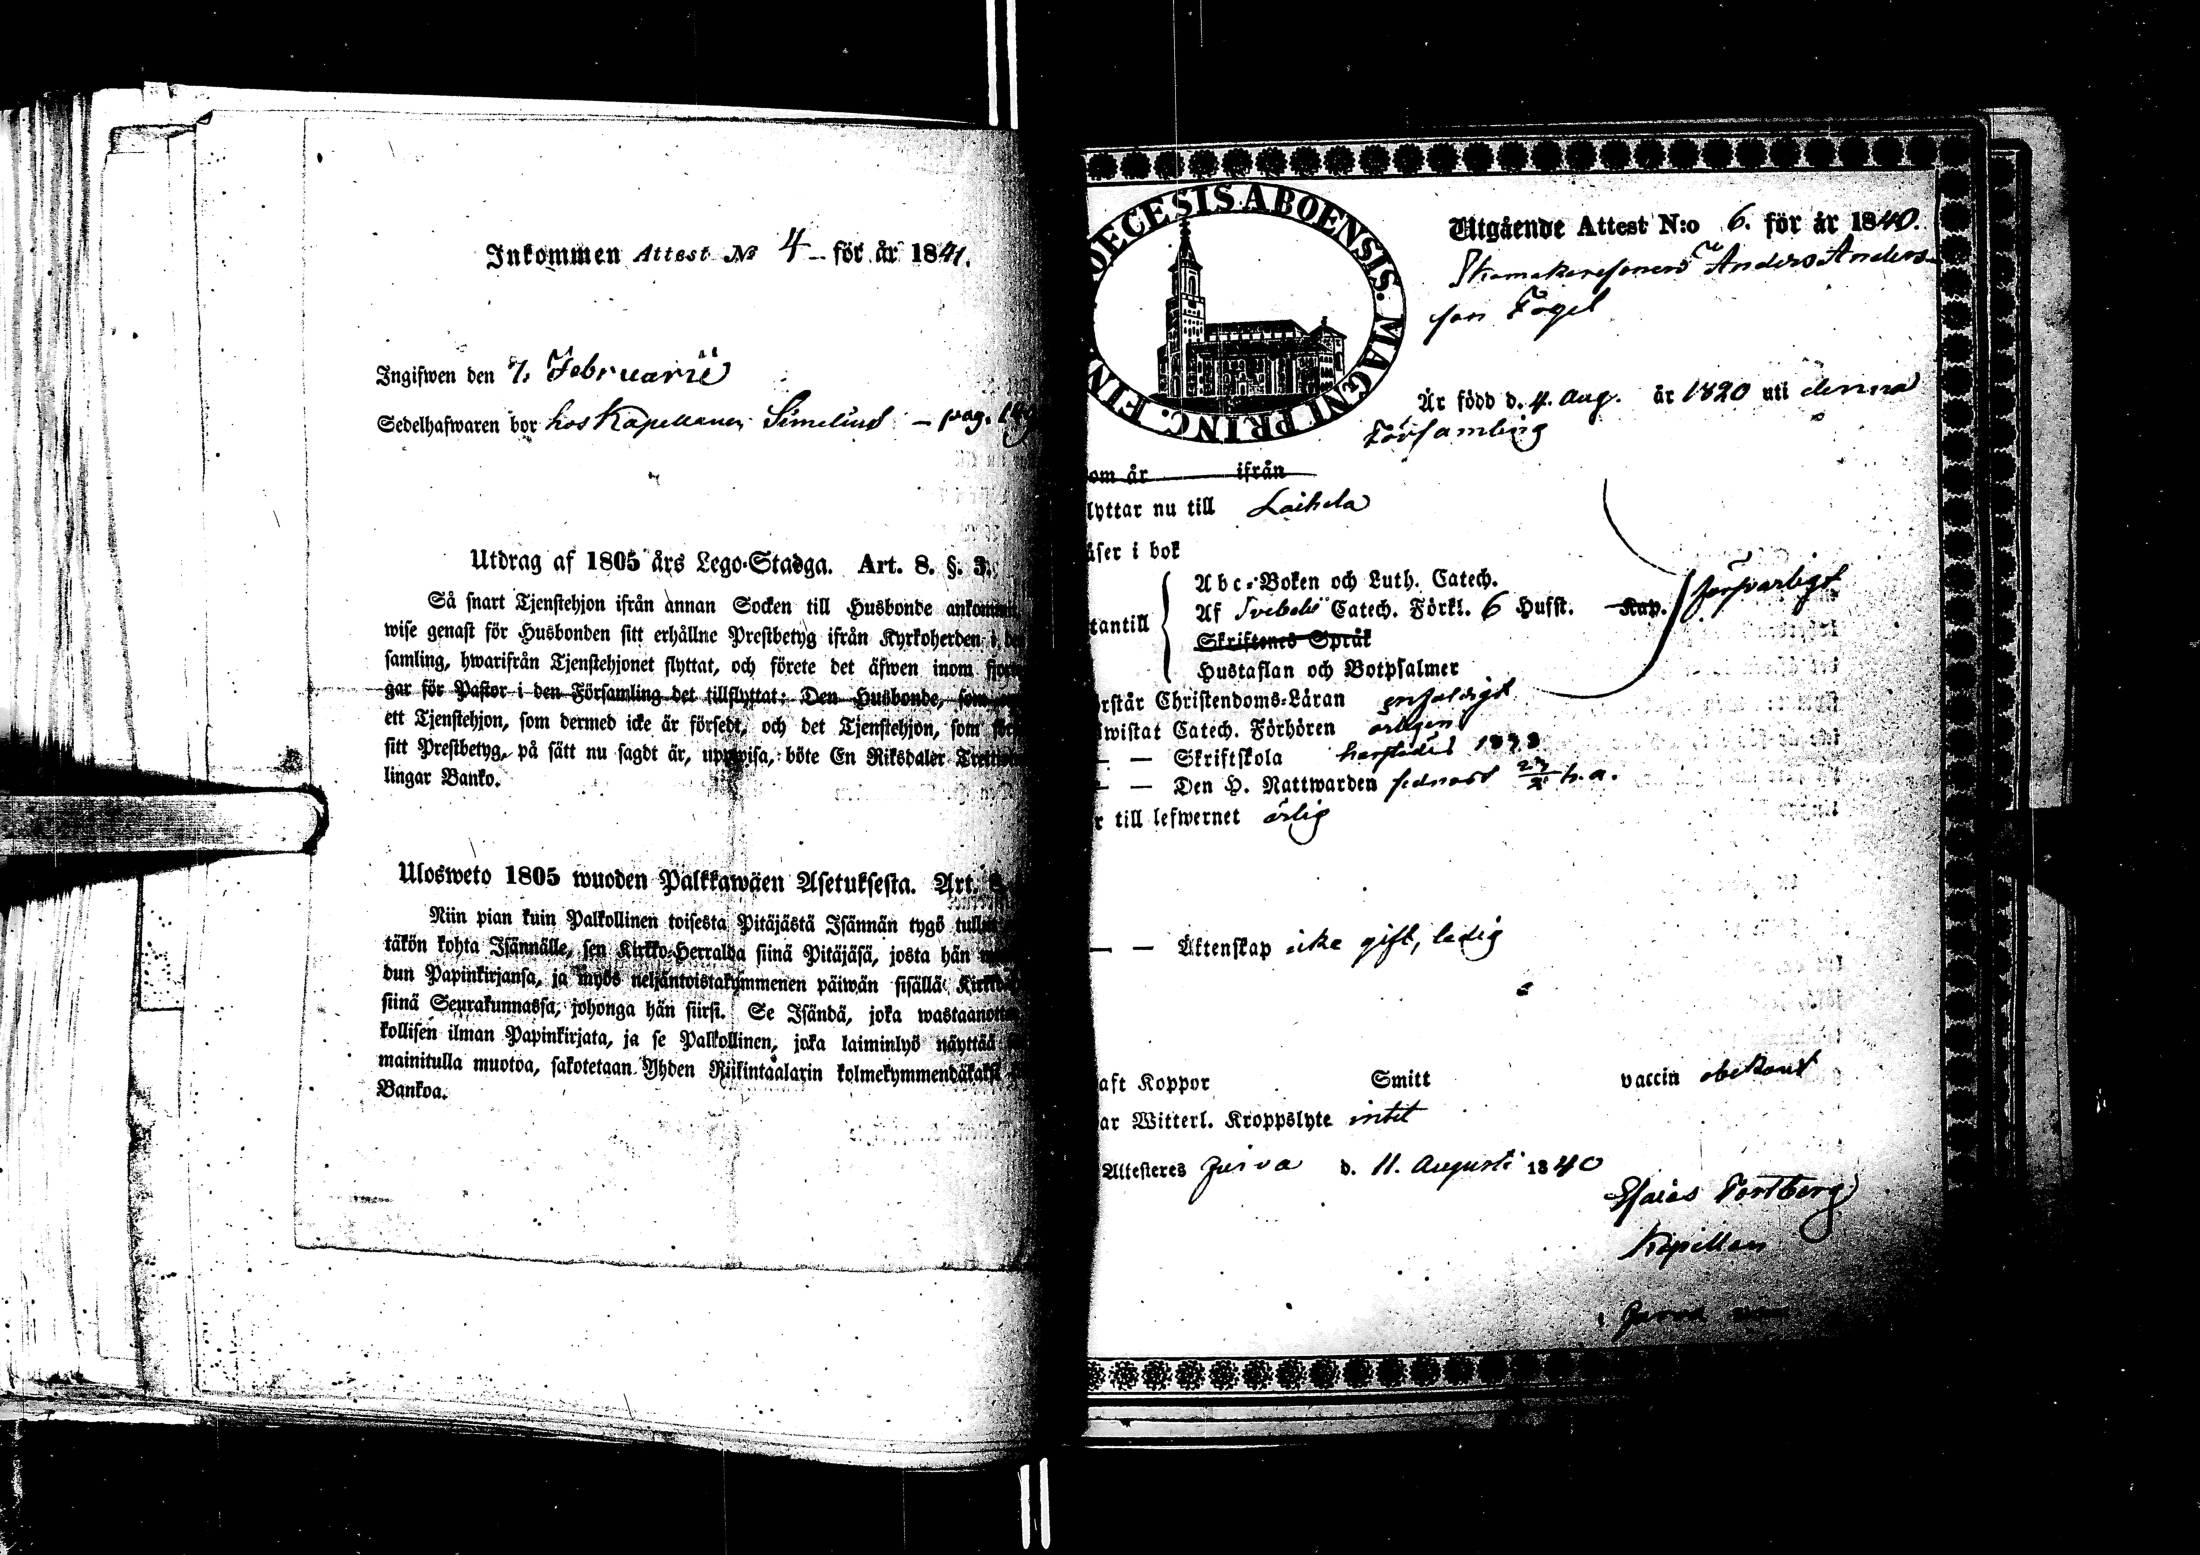 Inkommen Attest No 4 – för år 1841.
Ingifwen den 7. Februarii
Sedelhafwaren bor hos Kapellanen Simelius – pag.
Utdrag af 1805 års Lego-Stadga. Art. 8. §. 3.
Så snart Tjenstehjon ifrån annan Socken till Husbonde
wise genast för Husbonden sitt erhållne Prestbetyg ifrån Kyrkoherden i
samling, hwarifrån Tjenstehjonet flyttat, och förete det äfwen inom
gar för Pastor i den Församling det tillflyttat: Den Husbonde, som
ett Tjenstehjon, som dermed icke är försedt, och det Tjenstehjon, som
sitt Prestbetyg, på sätt nu sagdt är, uppwisa, böte En Riksdaler
lingar Banko.
Ulosweto 1805 wuoden Palkkawäen Asetuksesta. Art.
Niin pian kuin Palkollinen toisesta Pitäjästä Isännän tygö
täkön kohta Isännälle, sen Kirkko-Herralda siinä Pitäjäsä, josta hän
dun Papinkirjansa, ja myös neljäntoistakymmenen päiwän sisällä
siinä Seurakunnassa, johonga hän siirsi. Se Isändä, joka
kollisen ilman Papinkirjata, ja se Palkollinen, joka laiminlyö näyttää
mainitulla muotoa, sakotetaan Yhden Riikintaalarin kolmekymmendäkaksi
Bankoa.
OECESIS ABOENSIS. MAGNI PRINC. FIN
Utgående Attest N:o 6. för år 1840.
Skomakaresonen Anders Anders
son Fogel
Är född d. 4. Aug. år 1820 uti denna
Församling
om år ifrån
lyttar nu till Laihela
äser i bok
Abc-Boken och Luth. Catech.
Af Svebelii Catech. Förkl. 6 Hufst. Kap. försvarligt
tantill
Skriftenes Språk
Hustaflan och Botpsalmer
rstår Christendoms-Läran enfaldigt
wistat Catech. Förhören årligen
– – Skriftskola härstädes
– – Den H. Nattwarden sednast h. a.
r till lefwernet ärlig
– – Äktenskap icke gift, ledig
aft Koppor Smitt vaccin obekant
ar Witterl. Kroppslyte intet
Attesteres Jurva d. 11. Augusti 1840
Esaias Fortberg
Kapellan
i Jurva